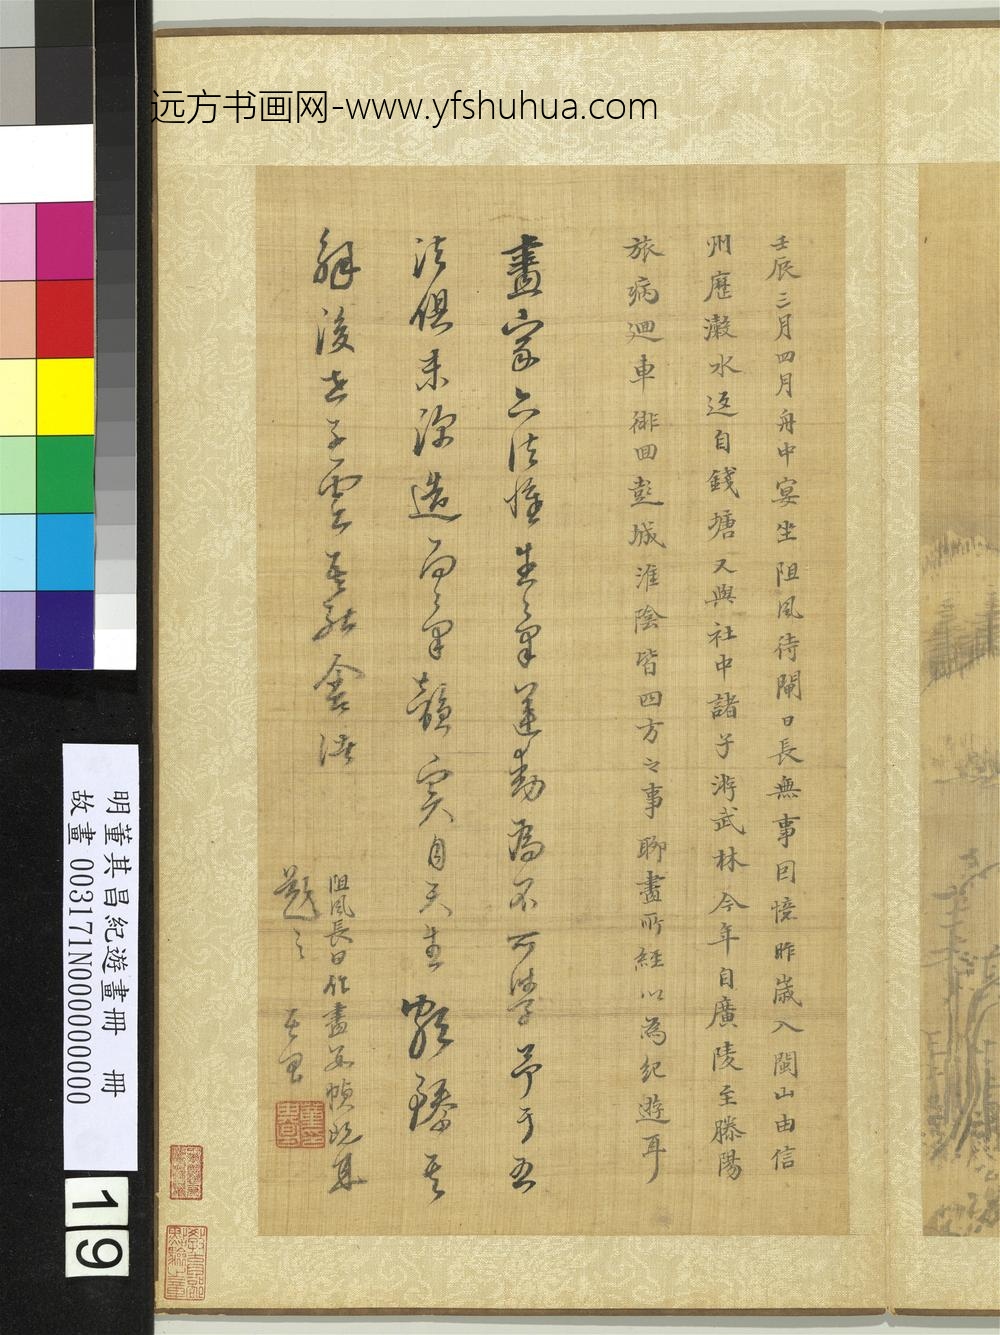 远方书画网-www.yfshuhua.com
壬辰三月四月舟中宴坐阻風待閘日長無事回憶昨歲入閩山由信
州歷瀫水返自錢塘又與社中諸子游武林今年自廣陵至滕陽
旅病迴車徘回彭城淮陰皆四方之事聊畫所經以為紀遊耳
畫家六法惟生氣運動為不可學予于五
法俱未深造而氣韻實自天生頗臻其
解後世子雲吾能舍諸
阻風長日作畫數幀既其
題之 其昌
明董其昌紀遊畫冊 冊
故畫 003171N000000000
19